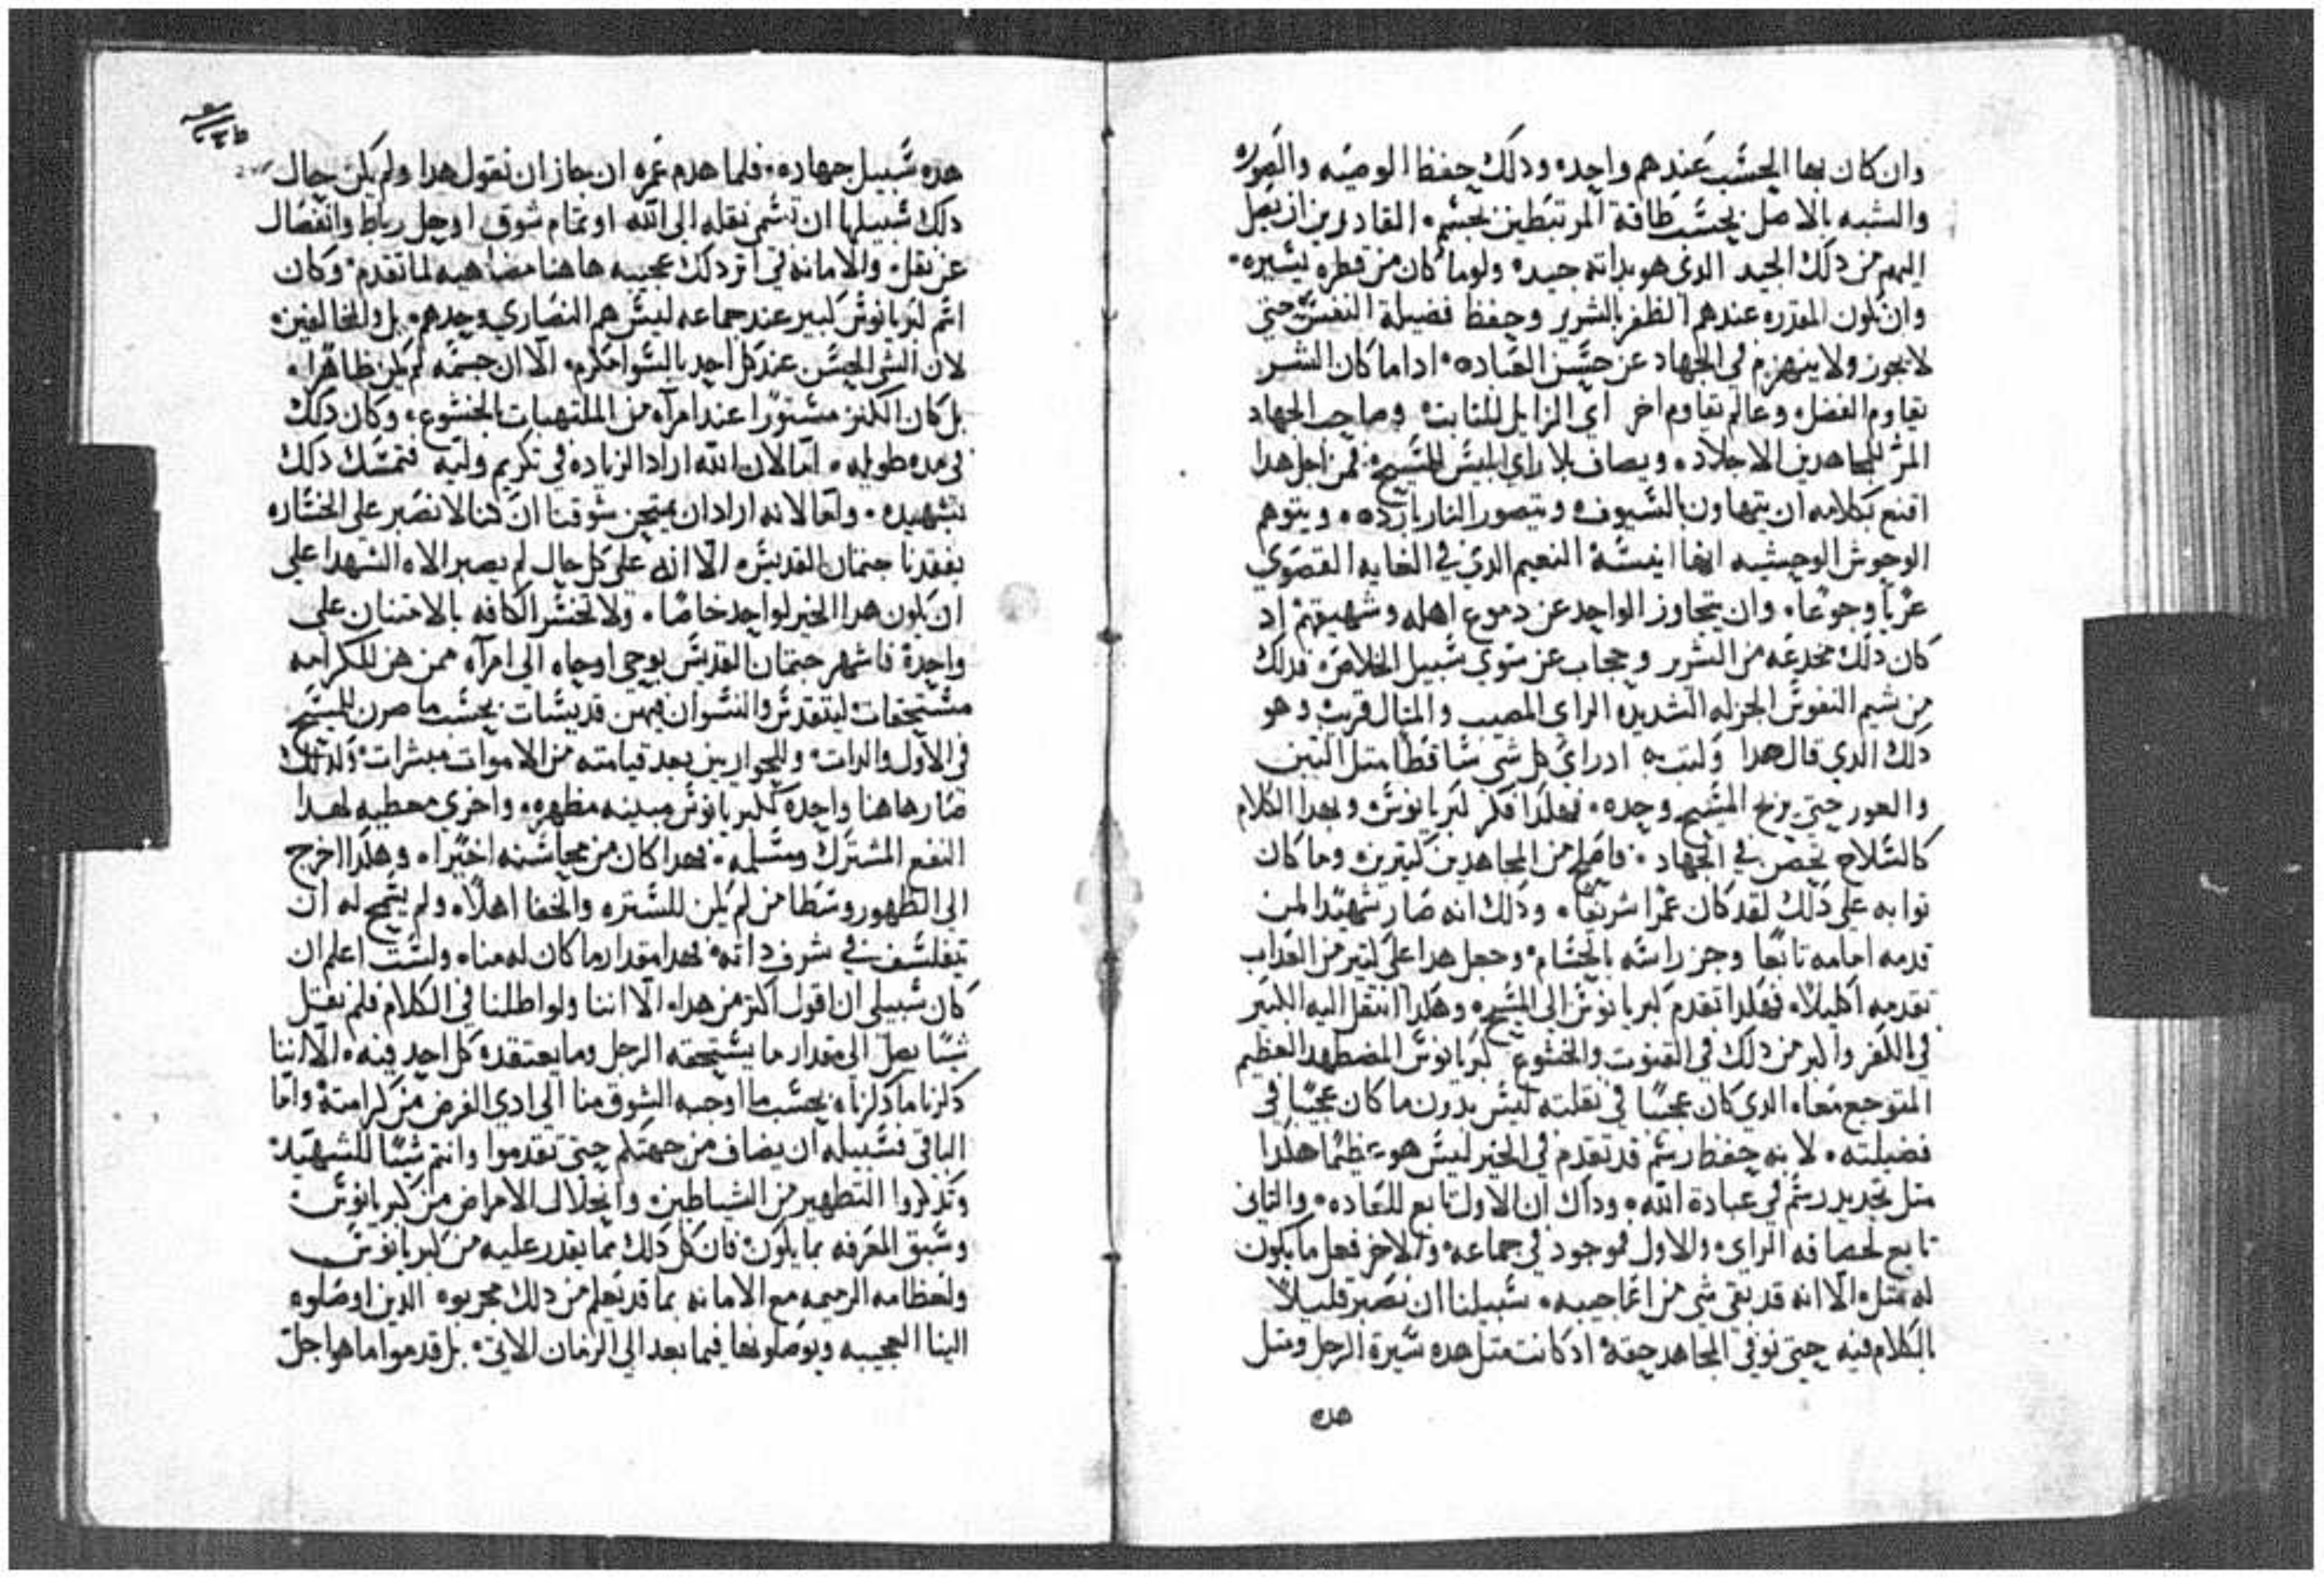 وان كان بها الحسب عندهم واحده ودلك حفظ الوصيه والصوره
والشبه بالاصل بحسب طاقة المرتبطين بجسم، القادرين ان يصل
اليهم من دلك الجيد الدي هو بداته جيد، ولو ما كان من قطره يسيره،
وان تكون المقدره عندهم الظفر بالشرير وحفظ فضيلة النفس حتي
لا يجوز ولا ينهزم في الجهاد عن حسن العباده، اداما كان الشر
تقاوم الفضل، وعالم تقاوم اخر اي الزايل للثابت، وصاحب الجهاد
المر للمجاهدين الاجلاد، ويصاف بلا راي ابليس للمسيح، فمن اجل هدا
اقنع بكلامه ان يتهاون بالسيوف، ويتصور النار بارده، ويتوهم
الوحوش الوحشيه انها انيسة النعيم الدي في الغايه القصوي
عريا وجوعا، وان يتجاوز الواحد عن دموع اهله وشهيقهم اد
كان دلك مخدعه من الشرير وحجاب عن سوي سبيل الخلاص، فدلك
من شيم النفوس الجزله الشديده الراي المصيب والمثال قريب، وهو
دلك الدي قال هدا وكتب به اد راي كل شي ساقطا متل التبن
والعور حتي يربح المسيح وحده، فهكدا فكر كبريانوس، وبهدا الكلام
كالسلاح يحض في الجهاد، فاصلح من المجاهدين كتيرين، وما كان
توابه علي دلك لقد كان عمرا شريفا، ودلك انه صار شهيدا لمن
قدمه امامه تابعا وجز راسه بالحسام، وجعل هدا علي كتير من العداب
تقدمه اكليلا، فهكدا تقدم كبريانوس الي المسيح، وهكدا انتقل اليه الكبير
في الكفر واكبر من دلك في القنوت والخشوع كبريانوس المضطهد العظيم
المتوجع معا، الدي كان عجيبا في نقلته ليس بدون ما كان عجيبا في
فضيلته، لا به حفظ رسم قد تقدم في الخير ليس هو عظيما هكدا
متل تجديد رسم في عبادة الله، وداك ان الاول تابع للعاده، والتاني
تابع لحصافه الراي، والاول موجود في جماعه، والاخر فعل ما يكون
له متل، الا انه قد بقي شي من اعاجيبه، سبيلنا ان نصبر قليلا
بالكلام فيه حتي نوفي المجاهد حقه، اد كانت متل هده سيرة الرجل ومتل
هده
هده سبيل جهاده، فلما هدم عمره ان جاز ان نقول هدا ولم يكن حال
دلك سبيلها ان تسمي نقله الي الله او تمام شوق او حل رباط وانفصال
عن نقل، والامانه في اتر دلك عجيبه هاهنا مضاهيه لما تقدم، وكان
اسم كبريانوس كبير عند جماعه ليس هم النصاري وحدهم، بل وللمخالفين،
لان الشي الحسن عند كل احد بالسوا مكرم، الا ان جسمه لم يكن ظاهرا،
بل كان الكنز مستورا عند امراه من الملتهبات بالخشوع، وكان دلك
في مده طويله، اما لان الله اراد الزياده في تكريم وليه فتمسك دلك
بشهيده، واما لانه اراد ان يمتحن شوقنا ان كنا لا نصبر علي الخساره
بفقدنا جتمان القديس، الا انه علي كل حال لم يصبر الاه الشهدا علي
ان يكون هدا الخير لواحد خاصا، ولا تخسر الكافه بالامتنان علي
واحدة فاشهر جتمان القديس بوحي اوحاه الي امراه ممن هن للكرامه
مستحقات ليتقدس والنسوان فهن قديسات بحسب ما صرن للمسيح
في الاول والدات، وللحواريين بعد قيامته من الاموات مبشرات، ولدلك
صار هاهنا واحدة لكبريانوس مبينه مظهره، واخري معطيه لهدا
النفع المشترك ومسلمه، فهدا كان من محاسنه اخيرا، وهكدا اخرج
الي الظهور وسطا من لم يكن للستره والخفا اهلا، ولم يسمح له ان
يتفلسف في شرف داته، فهدا مقدار ما كان له منا، ولست اعلم ان
كان سبيلي ان اقول اكتر من هدا، الا اننا ولو اطلنا في الكلام فلم نقل
شيا يصل الي مقدار ما يستحقه الرجل وما يعتقده كل احد فيه، الا اننا
دكرنا ما دكرناه بحسب ما اوجبه الشوق منا الي ادي الفرض من كرامته، واما
الباقي فسبيله ان يضاف من جهتكم حتي تقدموا وانتم شيا للشهيد،
وتدكروا التطهير من الشياطين، وانحلال الامراض من كبريانوس،
وسبق المعرفه بما يكون، فان كل دلك مما يقدر عليه من كبريانوس
ولعظامه الرميمه مع الامانه بما قد يعلم من دلك مجربوه الدين اوصلوه
الينا العجيبه ويوصلونها فيما بعد الي الزمان الاتي، بل قدموا ما هو اجل